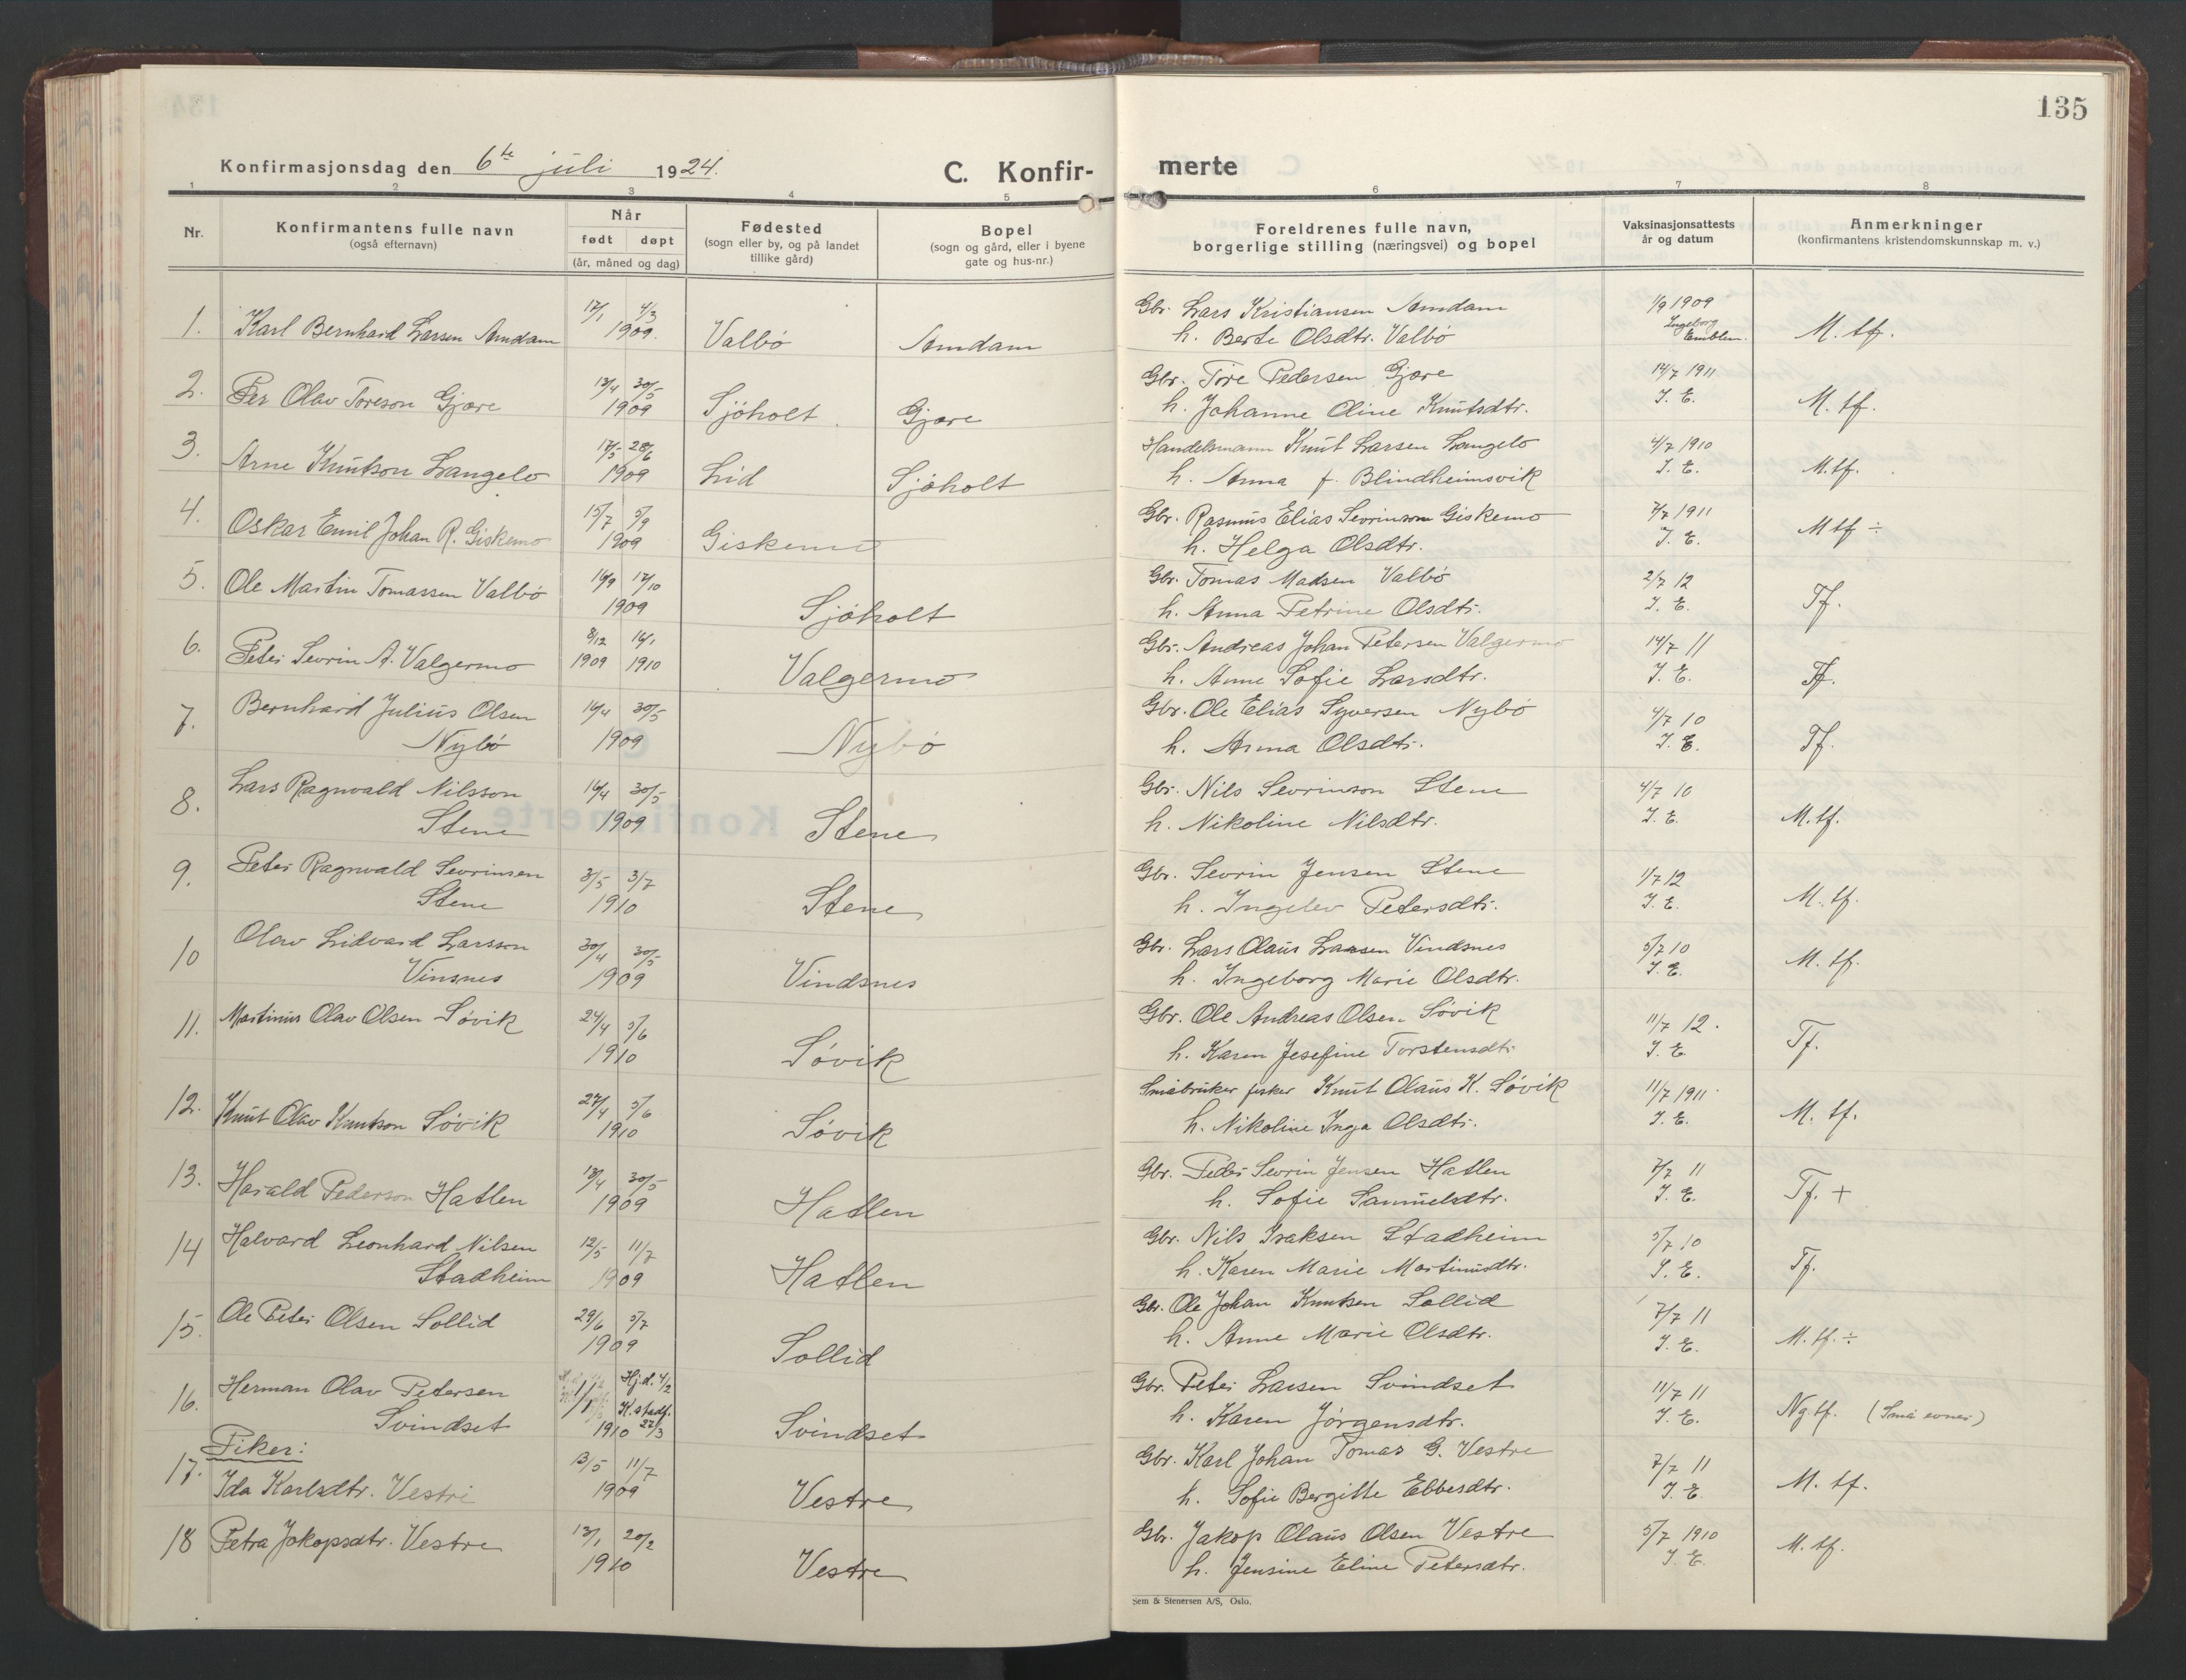 135
Konfirmasjonsdag den 6te juli 1924.
C. Konfirmerte
1 2 3 4 5 6 7 8
Nr.
Konfirmantens fulle navn
(også efternavn)
Når
født døpt
(år, måned og dag)
Fødested
(sogn eller by, og på landet
tillike gård)
Bopel
(sogn og gård, eller i byene
gate og hus-nr.)
Foreldrenes fulle navn,
borgerlige stilling (næringsvei) og bopel
Vaksinasjonsattests
år og datum
Anmerkninger
(konfirmantens kristendomskunnskap m. v.)
1. Karl Bernhard Larsen Amdam 17/1 4/3 1909. Valbö Amdam
Gbr. Lars Kristiansen Amdam 1/9 1909
h. Berte Olsdtr. Valbö Ingeborg Emblem. M. tf.
2. Per Olav Toreson Gjære 13/4 30/5 1909 Sjöholt Gjære
Gbr. Tore Pedersen Gjære 14/7 1911
h. Johanne Oline Knutsdtr. I. E. M. tf.
3. Arne Knutson Langelo 17/5 28/6 1909 Lid Sjöholt
Handelsmann Knut Larsen Langelo 4/7 1910
h. Anna f. Blindheimsvik I. E. M. tf.
4. Oskar Emil Johan R. Giskemo 15/7 5/9 1909 Giskemo
Gbr. Rasmus Elias Sevrinson Giskemo 7/7 1911
h. Helga Olsdtr. I. E. M tf ÷
5. Ole Martin Tomassen Valbö 16/9 17/10 1909 Sjöholt
Gbr. Tomas Madsen Valbö 2/7 12
h. Anna Petrine Olsdtr. I. E. Tf.
6. Peter Sevrin A. Valgermo 8/12 1909 16/1 1910 Valgermo
Gbr. Andreas Johan Petersen Valgermo 14/7 11
h. Anne Sofie Larsdtr. I. E. Tf.
7. Bernhard Julius Olsen
Nybö 16/4 30/5 1909 Nybö
Gbr. Ole Elias Syversen Nybö 4/7 10
h. Anna Olsdtr. I. E. Tf.
8. Lars Ragnvald Nilsson
Stene 16/4 30/5 1909 Stene
Gbr. Nils Sevrinson Stene 4/7 10
h. Nikoline Nilsdtr. I. E. M. tf.
9. Peter Ragnvald Sevrinsen
Stene 3/5 3/7 1910 Stene
Gbr. Sevrin Jensen Stene 1/7 12
h. Ingelev Petersdtr. I. E. M. tf.
10 Olav Lidvard Larsson
Vinsnes 30/4 30/5 1909 Vindsnes
Gbr. Lars Olaus Larsen Vindsnes 5/7 10
h. Ingeborg Marie Olsdtr. I. E. M. tf.
11. Martinus Olav Olsen Sövik 24/4 5/6 1910 Sövik
Gbr. Ole Andreas Olsen Sövik 11/7 12.
h. Karen Jesefine Torstensdtr I. E. Tf.
12. Knut Olav Knutson Sövik 27/4 5/6 1910 Sövik
Småbruker fisker Knut Olaus K. Sövik 11/7 1911
h. Nikoline Inga Olsdtr. I. E. M. tf.
13. Harald Pederson Hatlen 13/4 30/5 1909 Hatlen
Gbr. Peder Sevrin Jensen Hatlen 7/7 11
h. Sofie Samuelsdtr. I. E. Tf. +
14 Halvard Leonhard Nilsen
Stadheim 12/5 11/7 1909 Hatlen
Gbr. Nils Isaksen Stadheim 5/7 10
h. Karen Marie Martinusdtr. I. E. Tf.
15. Ole Peter Olsen Sollid 29/6 5/7 1909 Sollid
Gbr. Ole Johan Knutsen Sollid 7/7 11
h. Anne Marie Olsdtr. I. E. M. tf. ÷
16. Herman Olav Petersen
Svindset 1/1 Hj.d. 4/2 K. stadf. 27/3 1910 Svindset
Gbr. Peter Larsen Svindset 11/7 11
h. Karen Jörgensdtr. I. E. Ng. tf. (Små evner)
Piker:
17. Ida Karlsdtr. Vestre 13/5 11/7 1909 Vestre
Gbr. Karl Johan Tomas G. Vestre 7/7 11
h. Sofie Bergitte Ebbesdtr. I. E. M. tf.
18 Petra Jakopsdtr. Vestre 13/1 20/2 1910 Vestre
Gbr. Jakop Olaus Olsen Vestre 5/7 1910
h. Jensine Eline Petersdtr. I. E. M. tf.
Sem & Stenersen A/S, Oslo.